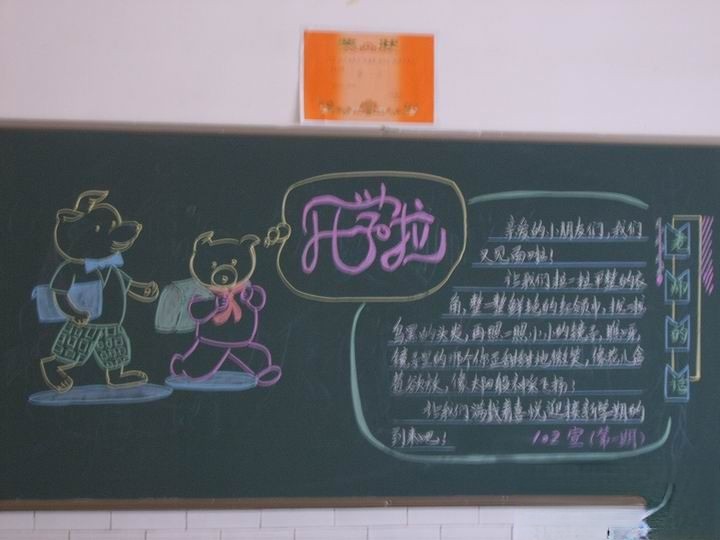 开学啦
老师的话
亲爱的小朋友们,我们
又见面啦!
让我们拉一拉平整的衣
角,整一整鲜艳的红领巾,拢一拢
乌黑的头发,再照一照小小的镜子,瞧瞧
镜子里的那个你正甜甜地微笑,像花儿含
苞欲放,像太阳
让我们满载着喜悦,迎接新学期的
到来吧!
102宣(第一期)